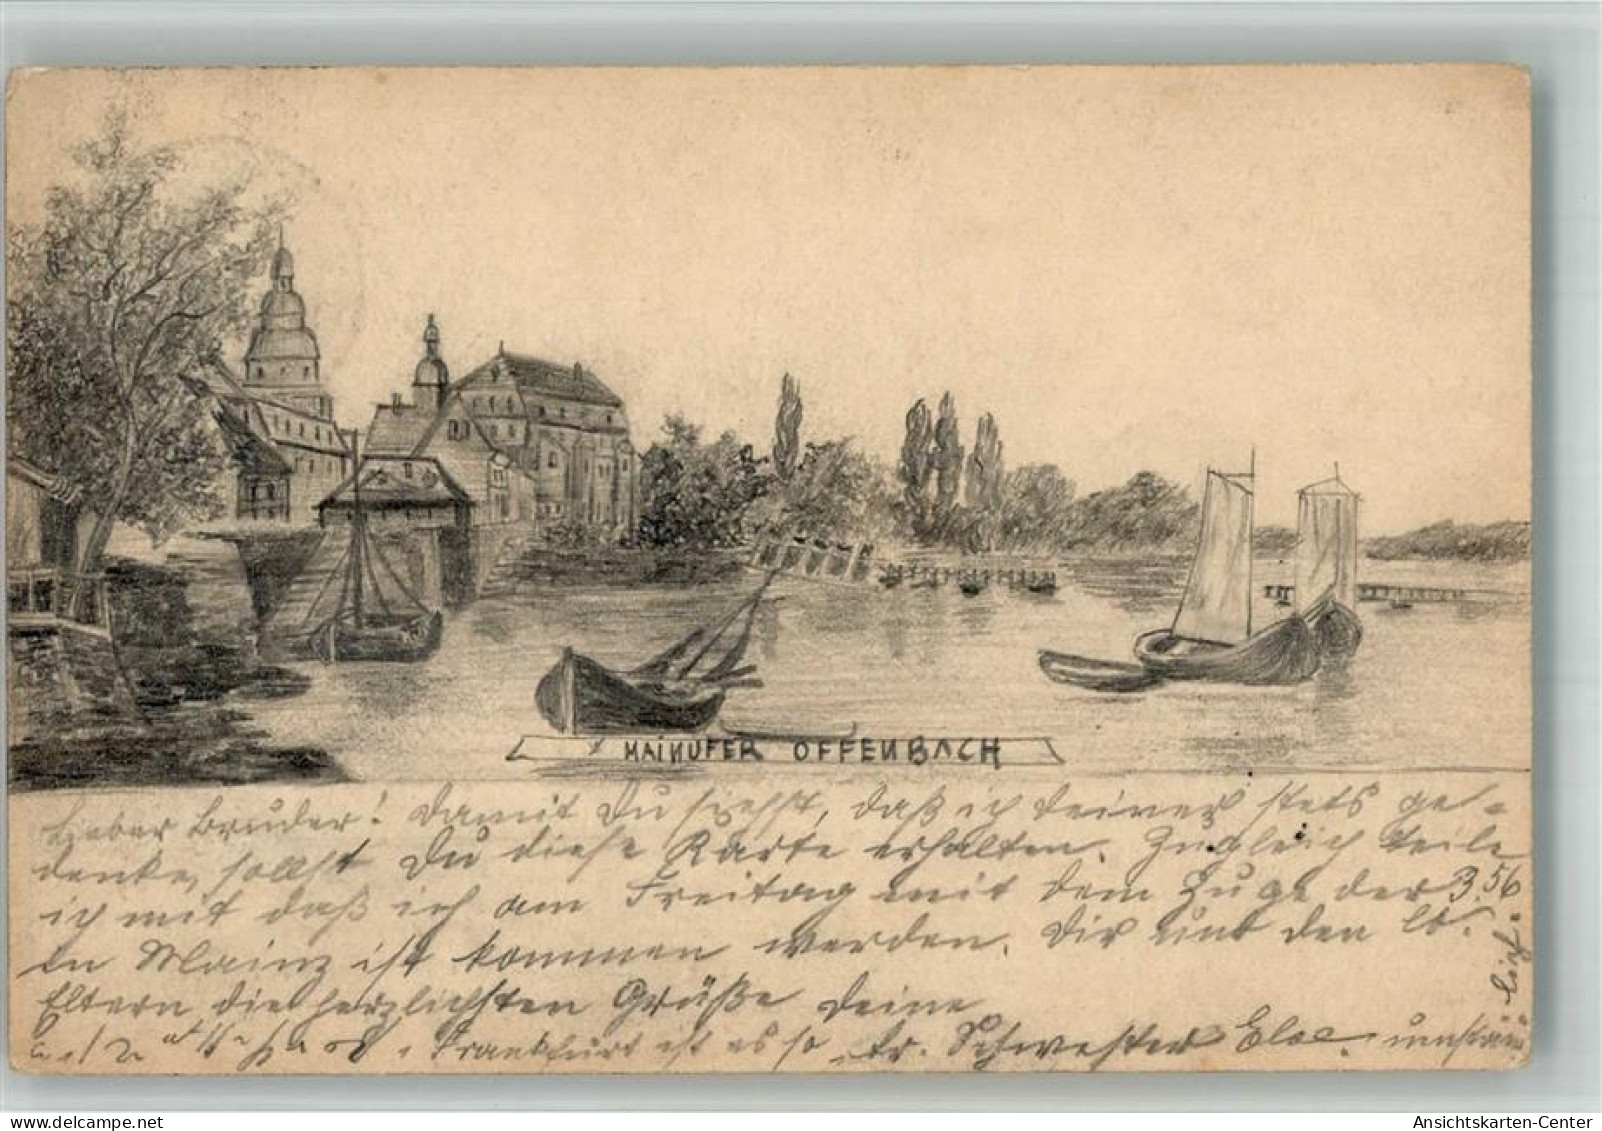 MAINUFER OFFENBACH
Lieber Bruder! Damit Du siehst, daß ich deiner stets ge-
denke, sollst Du diese Karte erhalten. Zugleich teile
ich mit daß ich am Freitag mit dem Zuge der 3.56
in Mainz ist kommen werden. Dir und den lb.
Eltern die herzlichsten Grüße deine
Frankfurt ist es so tr. Schwester Elsa.
Ansichtskarten-Center